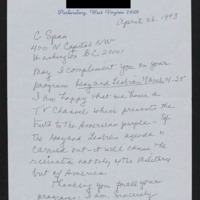 Parkersburg, West Virginia 26101
April 26, 1993
C Span
400 N Capitol NW
Washington DC 20001
May I compliment you on your
program Gay and Lesbian March 4-25
I am happy that we have a
TV Channel which presents the
truth to the American people - If
the Gay and Lesbian agenda is
carried out it will cause the
not only of the military
but of America.
Thanking you for all your
programs - I am, sincerely